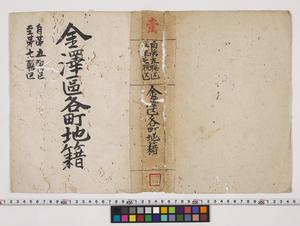 自第五聯区
至第七聯区
金澤區各町地籍
壹
自第五聯区
至第七聯区
金澤区各町地籍